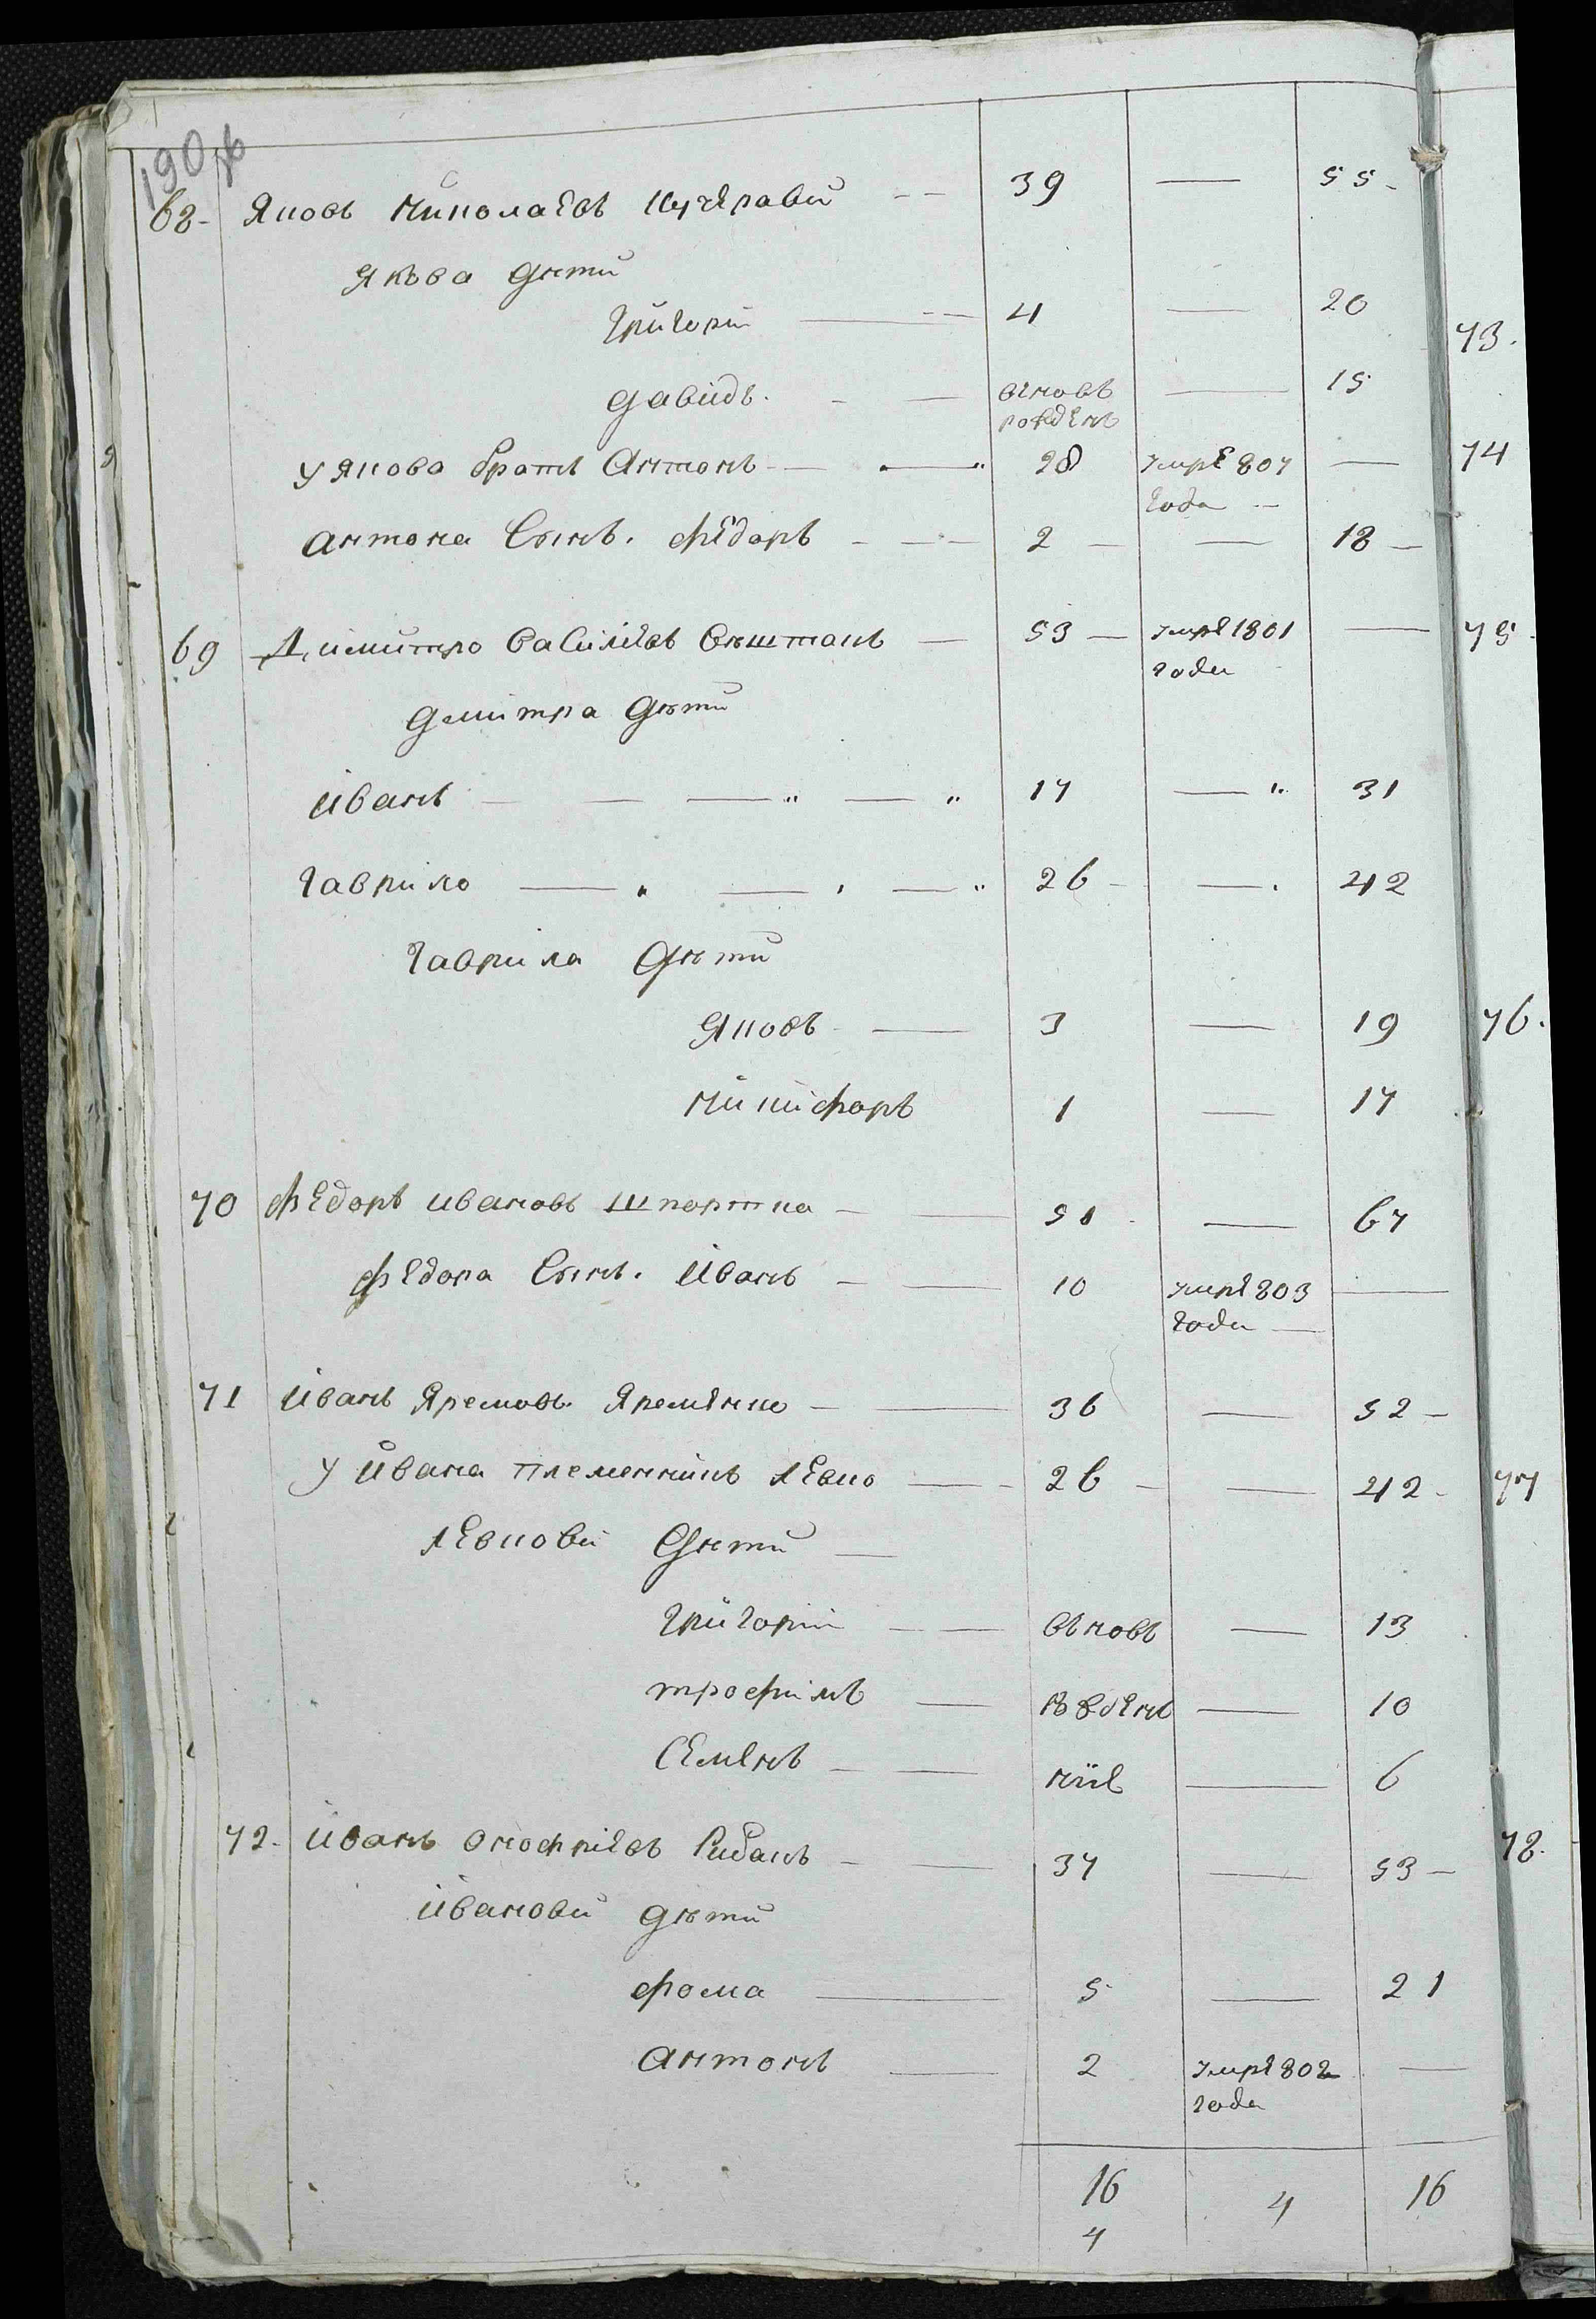 190 об
68- Яковъ Николаевъ Кучеравий 39 — 55-
Якова дѣти
Григорий 4 — 20
давидъ. вновъ рожденъ — 15
у Якова братъ Антонъ 28 умре 807 года —
антона Сынъ. федоръ 2 — 18
69 Димитро Василiевъ 53 умре 1801 года —
димитра дѣти
иванъ 17 — 31
гаврило 26 — 42
гаврила дѣти
Яковъ 3 — 19
никифоръ 1 — 17
70 федоръ ивановъ шпортка 51 — 67
федора Сынъ. иванъ 10 умре 803 года —
71 иванъ Яремовъ. Яременко 36 — 52
у ивана племенникъ левко 26 — 42
левкови дѣти —
григорий вѣновъ — 13
трофимъ рожденъ — 10
Семенъ ниie — 6
72. иванъ онофрiевъ Рибакъ 37 — 53
иванови дѣти
фома 5 — 21
антонъ 2 умре 802 года —
16 4 16
4
73.
74
75
76.
77
78.